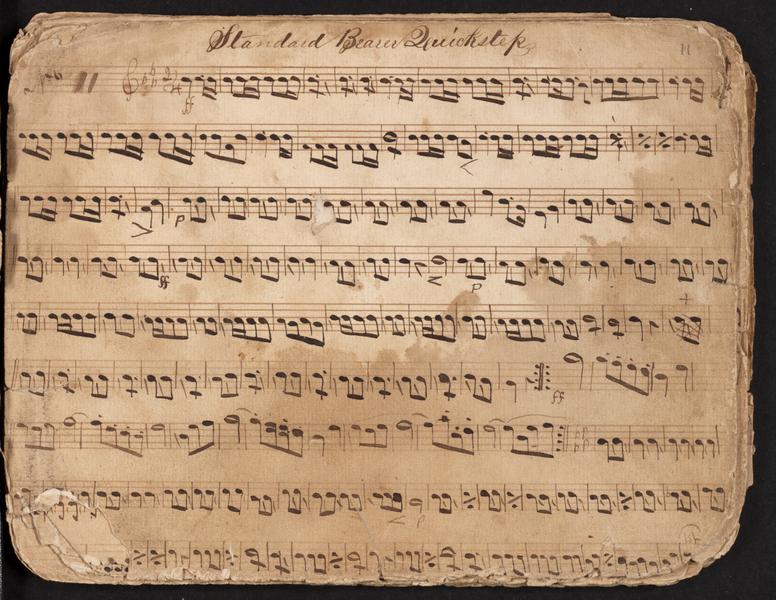 Standard Bearer Quickstep
11
No 11
ff
2/4
<
> p
ff < p
+
ff
< p